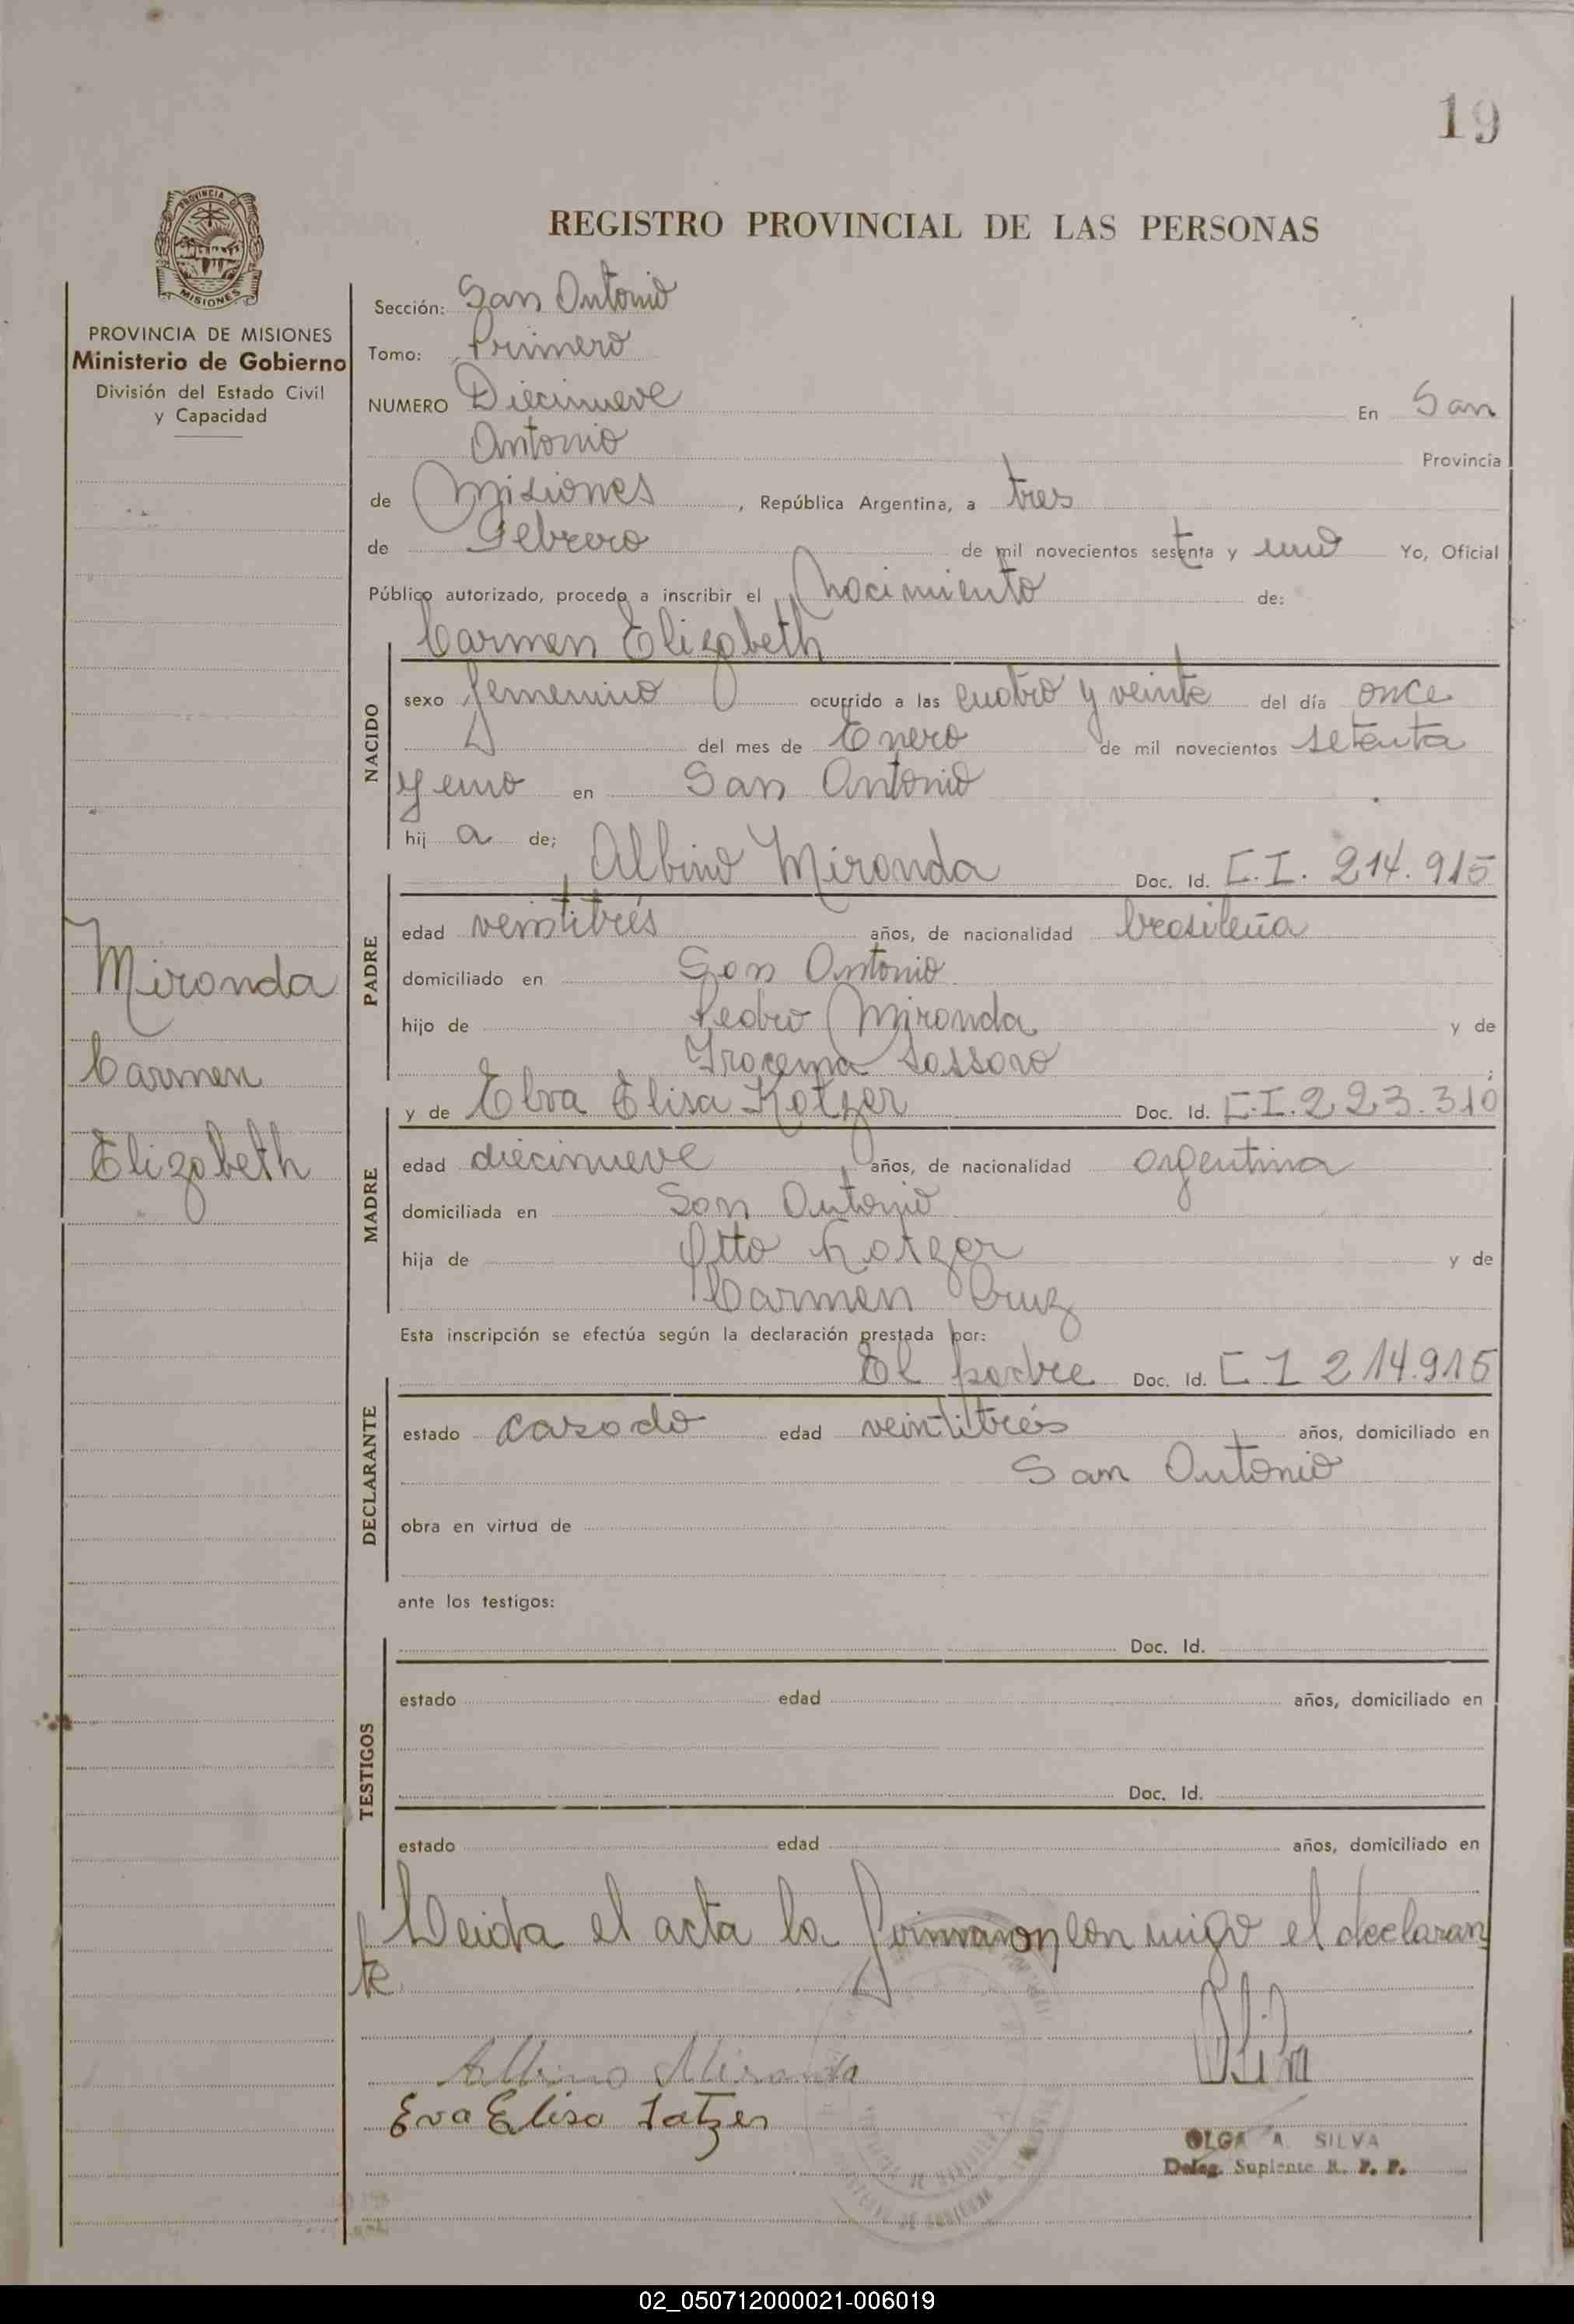 19
PROVINCIA DE
MISIONES
REGISTRO PROVINCIAL DE LAS PERSONAS
PROVINCIA DE MISIONES
Ministerio de Gobierno
División del Estado Civil
y Capacidad
Sección: San Antonio
Tomo: Primero
NUMERO Diecinueve En San
Antonio Provincia
de Misiones, República Argentina, a tres
de Febrero de mil novecientos setenta y uno Yo, Oficial
Público autorizado, procedo a inscribir el nacimiento de:
Carmen Elizabeth
NACIDO
sexo femenino ocurrido a las cuatro y veinte del día once
del mes de Enero de mil novecientos setenta
y uno en San Antonio
hija de;
Albino Miranda Doc. Id. C.I. 214.915
PADRE
edad veintitrés años, de nacionalidad brasileña
domiciliado en San Antonio
hijo de Pedro Miranda y de
;
y de Elva Elisa Kotzer Doc. Id. C.I. 223.310
MADRE
edad diecinueve años, de nacionalidad argentina
domiciliada en San Antonio
hija de Otto Kotzer y de
Carmen Cruz
Esta inscripción se efectúa según la declaración prestada por:
El padre Doc. Id. C I 214.915
DECLARANTE
estado casado edad veintitrés años, domiciliado en
San Antonio
obra en virtud de
ante los testigos:
TESTIGOS
Doc. Id.
estado edad años, domiciliado en
Doc. Id.
estado edad años, domiciliado en
Leida el acta la con migo el declaran
te
Albino Miranda
Eva Elisa
OLGA A. SILVA
Deleg. Suplente R. P. P.
Miranda
Carmen
Elizabeth
02_050712000021-006019